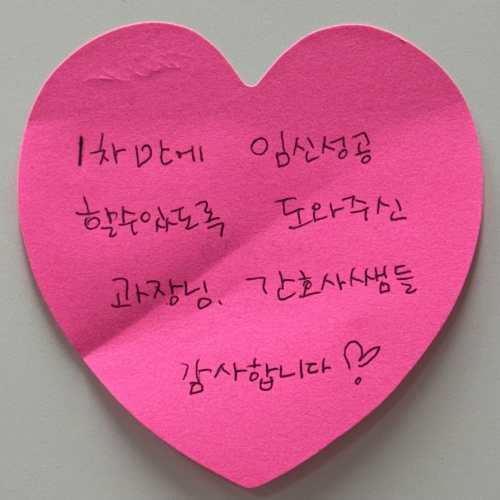 1차만에 임신성공
할수있도록 도와주신
과장님, 간호사쌤들
감사합니다♡